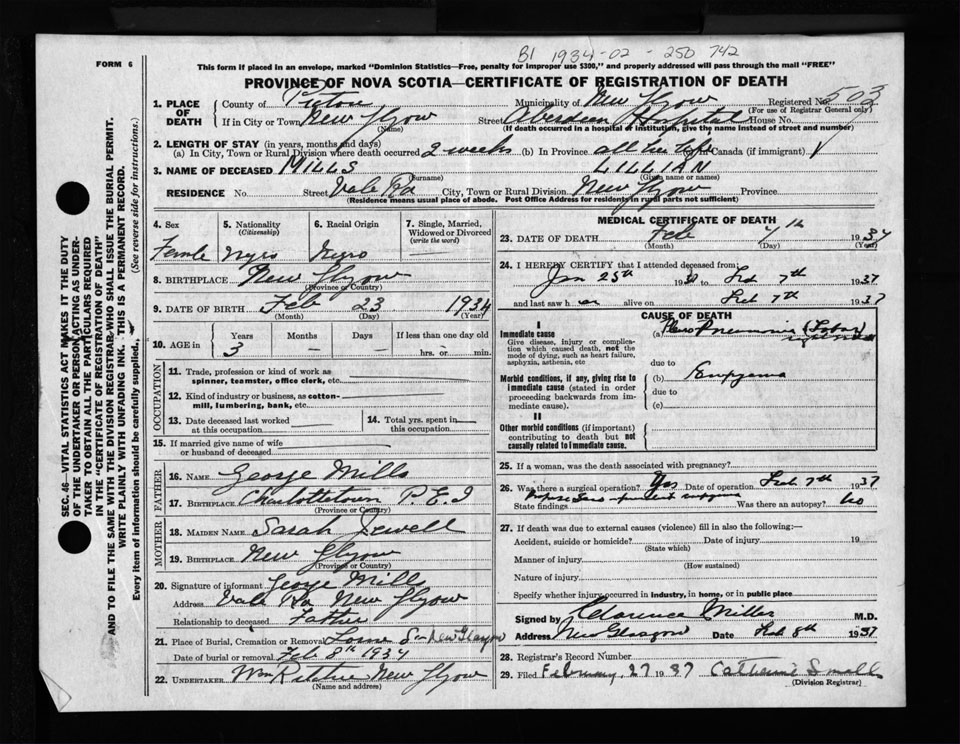 B1 1934-02-250742
FORM 6
This form if placed in an envelope, marked "Dominion Statistics—Free, penalty for improper use $300," and properly addressed will pass through the mail "FREE"
PROVINCE OF NOVA SCOTIA—CERTIFICATE OF REGISTRATION OF DEATH
1. PLACE OF DEATH
County of Pictou Municipality of New Glgow Registered No. 503
(For use of Registrar General only)
If in City or Town New Glgow Street Aberdeen Hospital House No.
(Name) (If death occurred in a hospital or institution, give the name instead of street and number)
2. LENGTH OF STAY (in years, months and days)
(a) In City, Town or Rural Division where death occurred 2 weeks (b) In Province all her life Canada (if immigrant)
3. NAME OF DECEASED MILLS LILLIAN
(Surname) (Given name or names)
RESIDENCE No. Street Vale Rd City, Town or Rural Division New Glgow Province
(Residence means usual place of abode. Post Office Address for residents in rural parts not sufficient)
4. Sex 5. Nationality (Citizenship) 6. Racial Origin 7. Single, Married, Widowed or Divorced (write the word)
Female Negro Negro —
8. BIRTHPLACE New Glgow
(Province or Country)
9. DATE OF BIRTH Feb 23 1934
(Month) (Day) (Year)
10. AGE in Years Months Days If less than one day old
3 — — hrs. or min.
OCCUPATION
11. Trade, profession or kind of work as spinner, teamster, office clerk, etc.
12. Kind of industry or business, as cotton-mill, lumbering, bank, etc.
13. Date deceased last worked at this occupation 14. Total yrs. spent in this occupation
15. If married give name of wife or husband of deceased
FATHER
16. NAME George Mills
17. BIRTHPLACE Charlottetown P.E.I
(Province or Country)
MOTHER
18. MAIDEN NAME Sarah Jewell
19. BIRTHPLACE New Glgow
(Province or Country)
20. Signature of informant George Mills
Address Vale Rd New Glgow
Relationship to deceased Father
21. Place of Burial, Cremation or Removal Lorne St New Glasgow
Date of burial or removal Feb 8th 1934
22. UNDERTAKER New Glgow
(Name and address)
MEDICAL CERTIFICATE OF DEATH
23. DATE OF DEATH Feb 7th 1937
(Month) (Day) (Year)
24. I HEREBY CERTIFY that I attended deceased from:
Jan 25th 1937 to Feb 7th 1937
and last saw her alive on Feb 7th 1937
CAUSE OF DEATH
I
Immediate cause (a) Pneumonia (Lobar)
Give disease, injury or complication which caused death, not the mode of dying, such as heart failure, asphyxia, asthenia, etc
due to
Morbid conditions, if any, giving rise to immediate cause (stated in order proceeding backwards from immediate cause).
(b) Empyema
due to
(c)
II
Other morbid conditions (if important) contributing to death but not causally related to immediate cause.
25. If a woman, was the death associated with pregnancy?
26. Was there a surgical operation? Yes Date of operation Feb 7th 1937
State findings Was there an autopsy? No
27. If death was due to external causes (violence) fill in also the following:—
Accident, suicide or homicide? Date of injury 19
(State which)
Manner of injury
(How sustained)
Nature of injury
Specify whether injury occurred in industry, in home, or in public place
Signed by Clarence Miller M.D.
Address New Glasgow Date Feb 8th 1937
28. Registrar's Record Number
29. Filed February 27 1937 Catherine Small
(Division Registrar)
SEC. 46—VITAL STATISTICS ACT MAKES IT THE DUTY
OF THE UNDERTAKER OR PERSON ACTING AS UNDER-
TAKER TO OBTAIN ALL THE PARTICULARS REQUIRED
IN THE "CERTIFICATE OF REGISTRATION OF DEATH"
AND TO FILE THE SAME WITH THE DIVISION REGISTRAR WHO SHALL ISSUE THE BURIAL PERMIT.
WRITE PLAINLY WITH UNFADING INK. THIS IS A PERMANENT RECORD.
Every item of information should be carefully supplied. (See reverse side for instructions.)